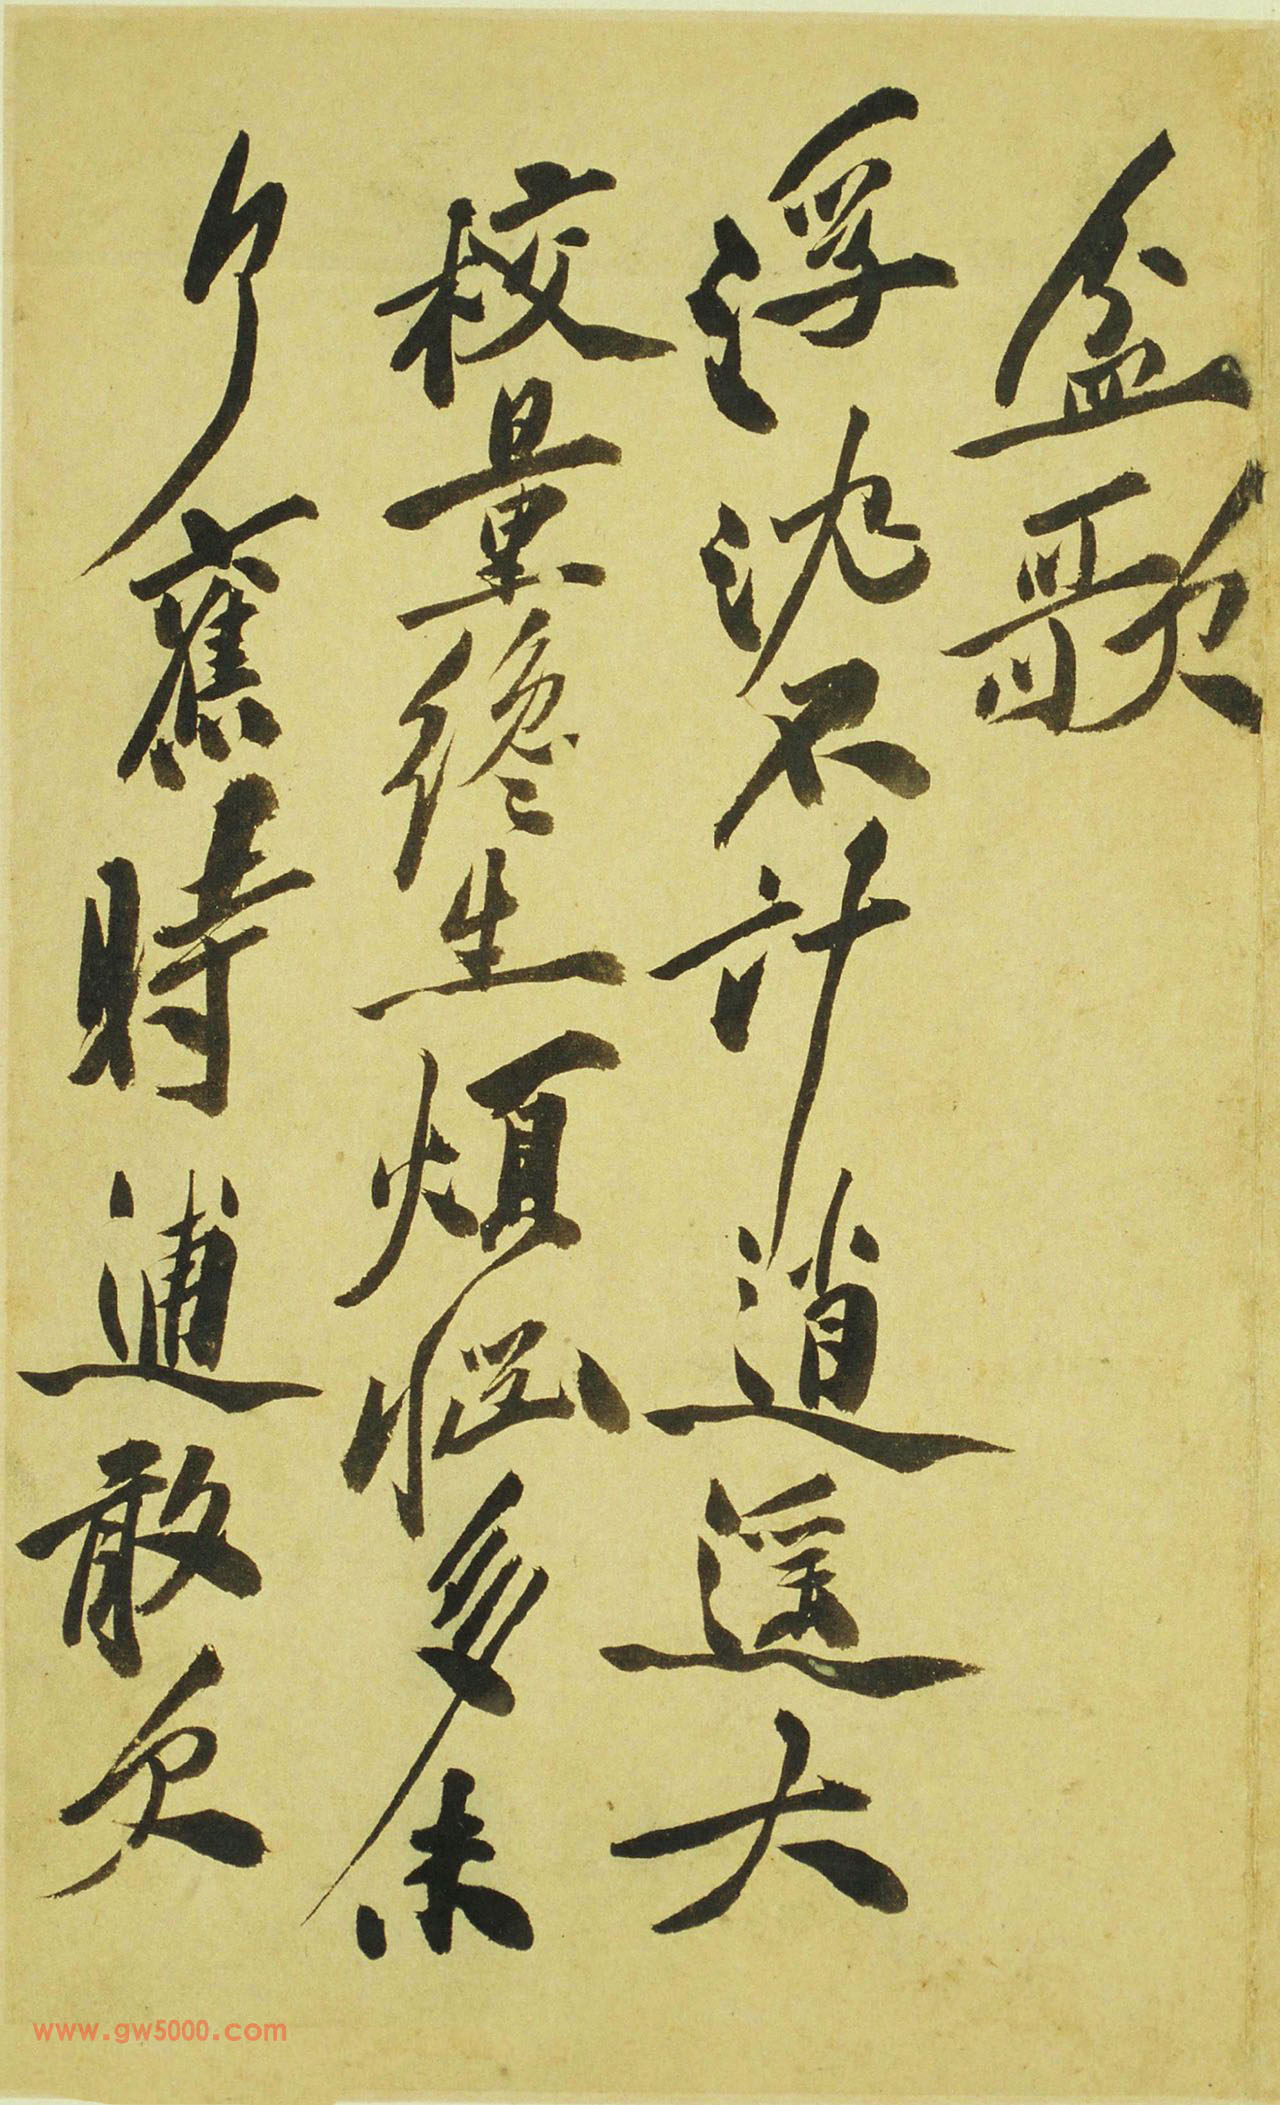 盆歌
浮沈不計逍遥大
校量終生煩惱多
舊時逋敢欠
www.gw5000.com